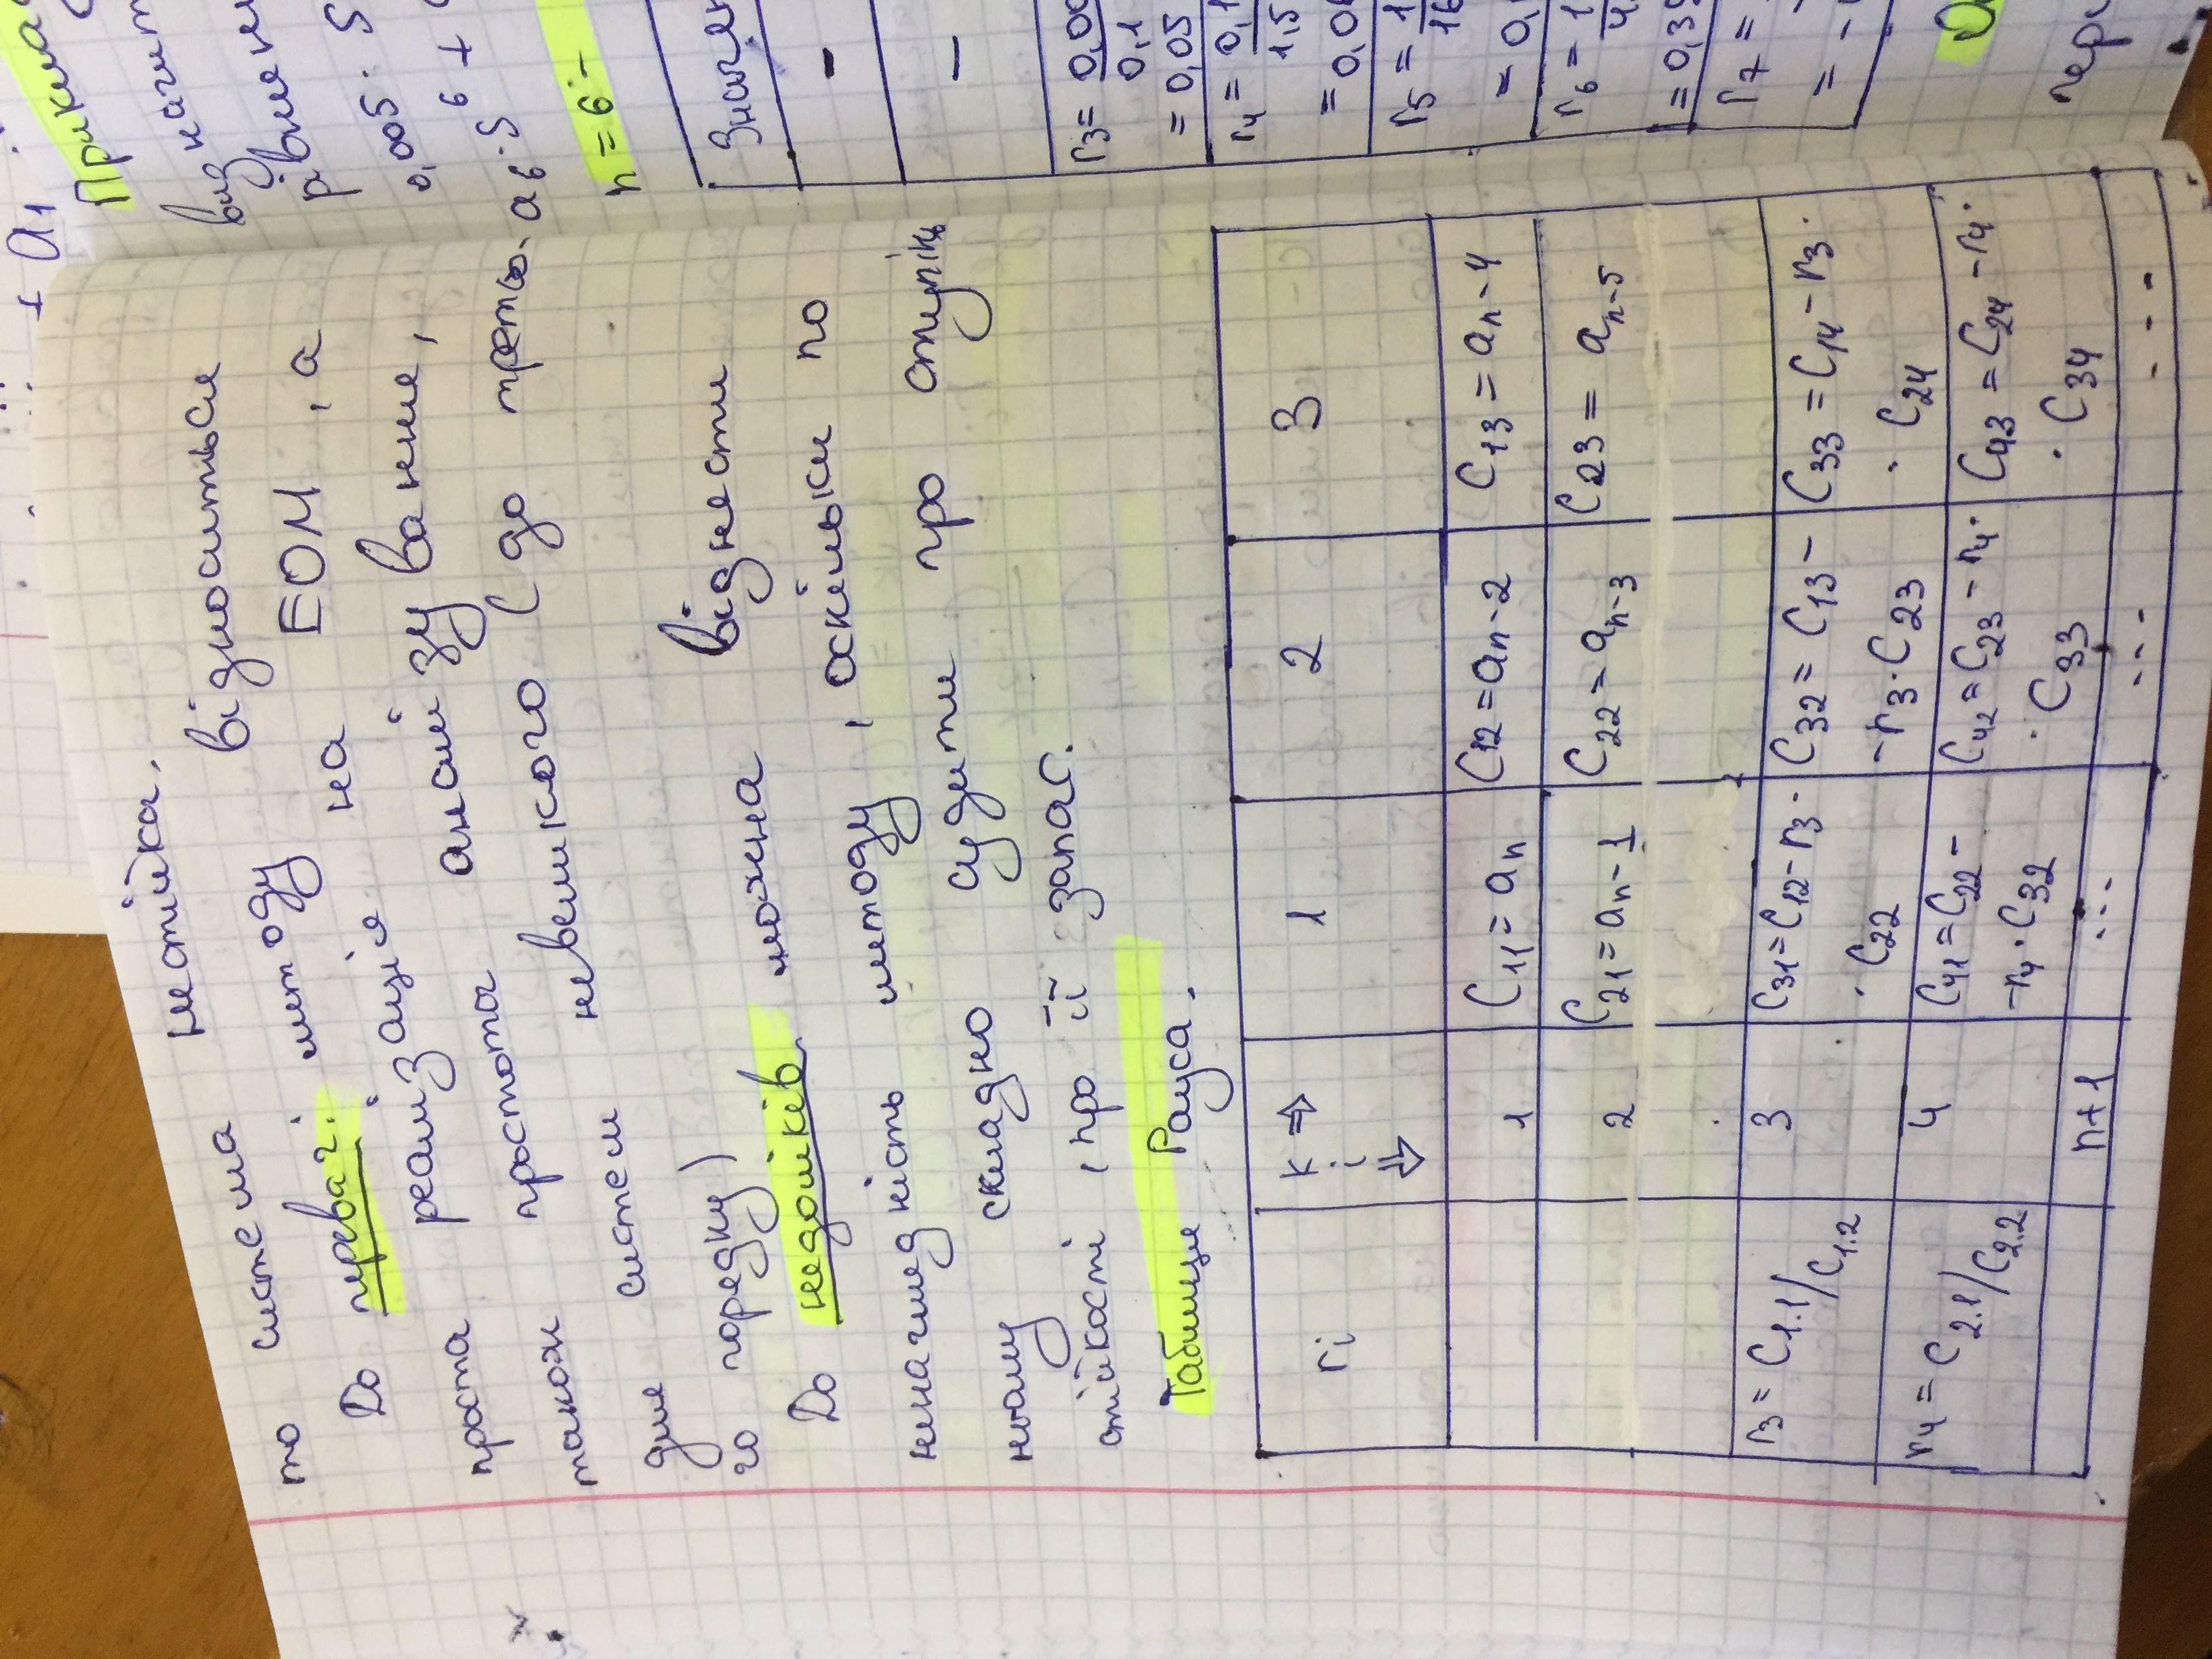 то система нестійка.
До переваг: методу відноситься
проста реалізація на ЕОМ, а
також простота анамізування,
для систем невеликого (до третьо-
го порядку)
До недоліків можна віднести
ненаглядність методу, оскільки по
ньому складно судити про ступінь
стійкості, про її запас.
Таблиця Рауса.
ri k ⇒ i ⇓ 1 2 3
1 C11 = an C12 = an-2 C13 = an-4
2 C21 = an-1 C22 = an-3 C23 = an-5
r3 = C1.1/C1.2 3 C31 = C12 - r3 · C32 = C13 - C33 = C14 - r3 ·
· C22 - r3 · C23 · C24
r4 = C2.1/C2.2 4 C41 = C22 - C42 = C23 - r4 · C43 = C24 - r4 ·
- r4 · C32 · C33 · C34
n+1 ... --- ---
+ a1
0,005 · S
a6 · S6 +
n = 6 -
-
-
r3 = 0,00
0,1
= 0,05
r4 = 0,1
1,5
= 0,0
r5 = 1
16
= 0,
r6 = 1
4
= 0,39
r7 =
= -